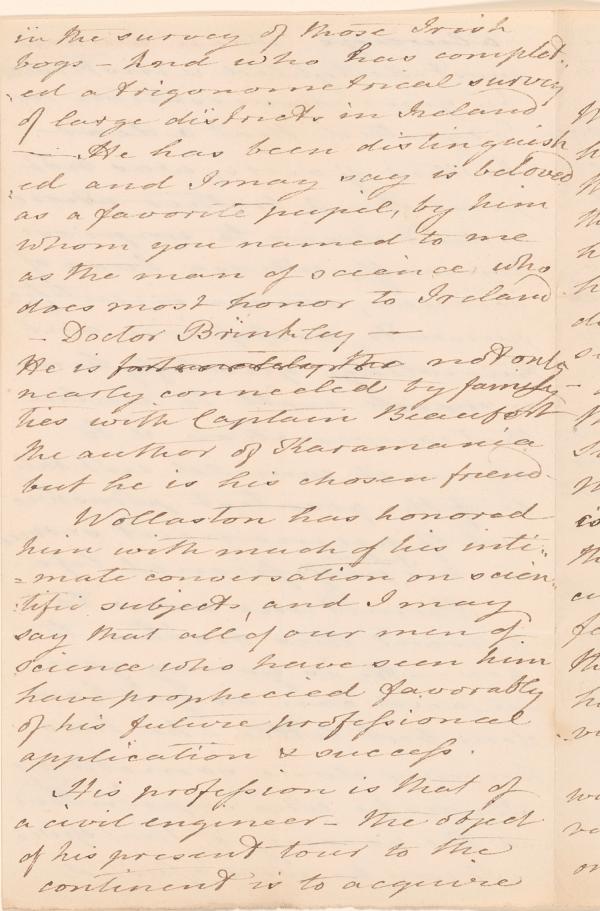 in the survey of those Irish
bogs – And who has complet-
-ed a trigonometrical survey
of large districts in Ireland
— He has been distinguish
-ed and I may say is beloved
as a favorite pupil, by him
whom you named to me
as the man of science who
does most honor to Ireland
– Doctor Brinkley —
He is fortunately the not only
nearly connected by family –
ties with Captain Beaufort
the author of Karamania
but he is his chosen friend.
Wollaston has honored
him with much of his inti-
=mate conversation on scien-
-tific subjects, and I may
say that all of our men of
science who have seen him
have prophecied favorably
of his future professional
application & success.
His profession is that of
a civil engineer – the object
of his present tour to the
continent is to acquire